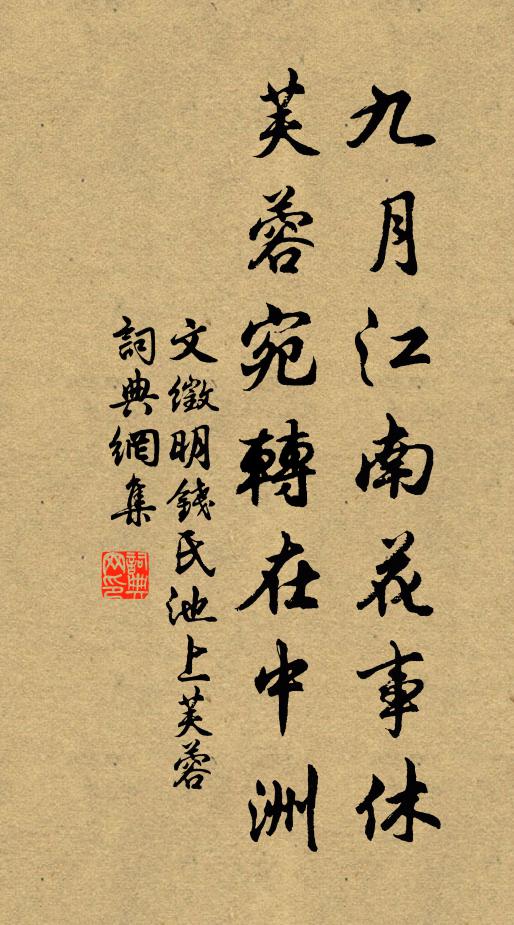 九月江南花事休
芙蓉宛轉在中洲
文徵明錢氏池上芙蓉
詞典網集
詞典網印